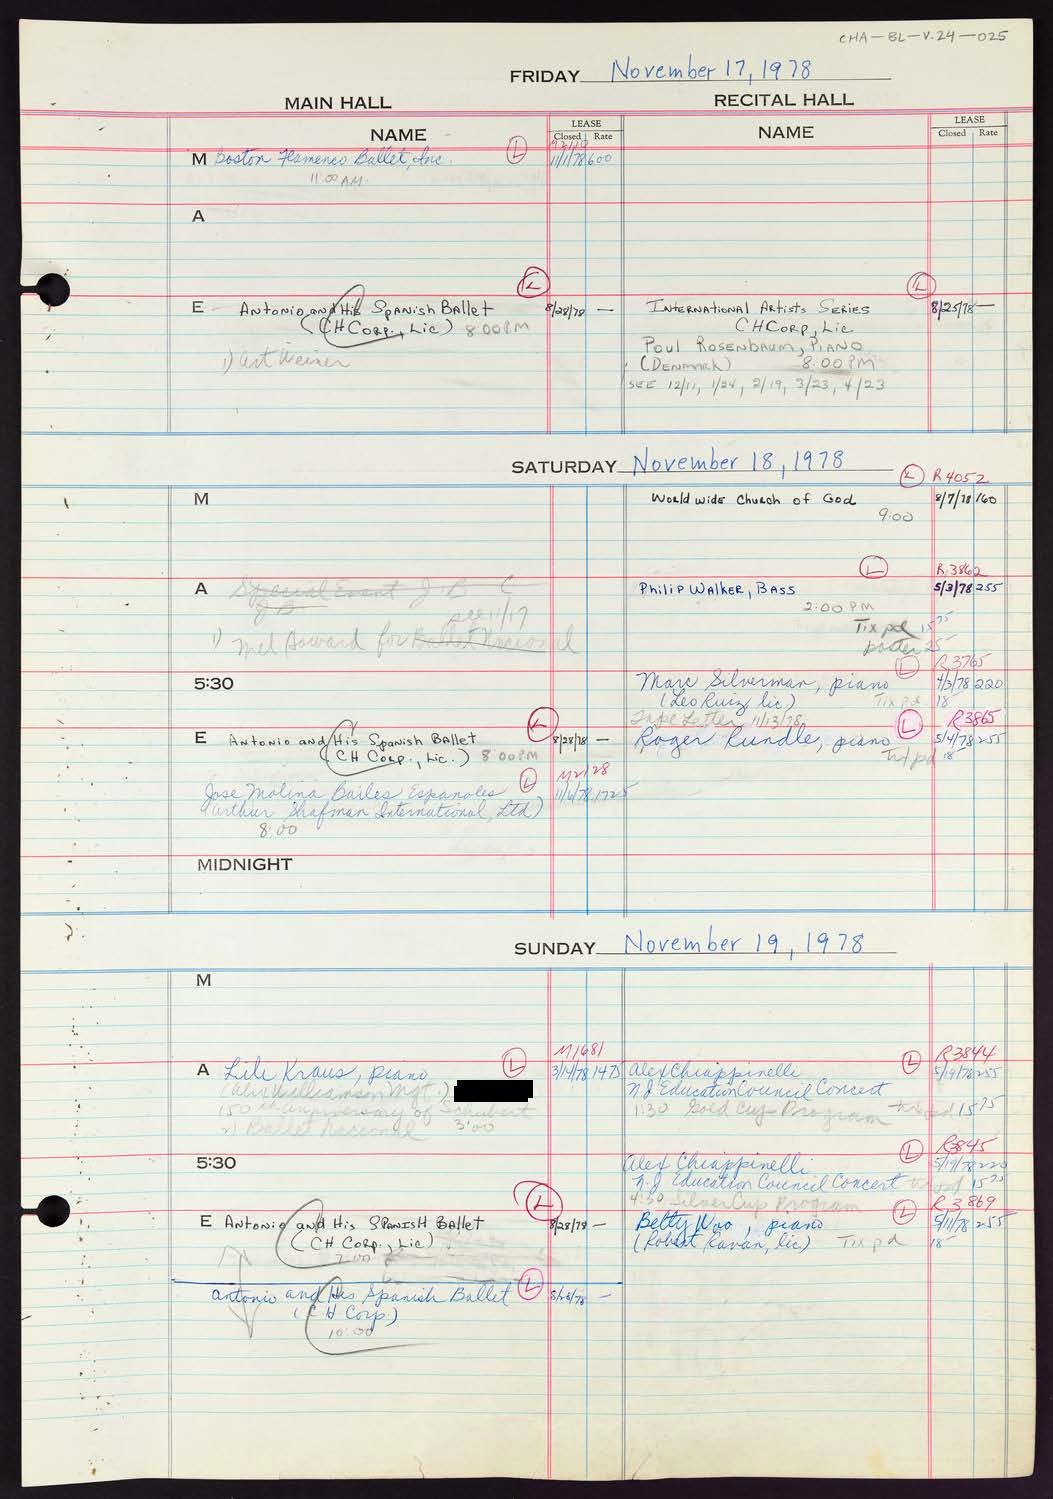 CHA-BL-V.24-025
FRIDAY November 17, 1978
MAIN HALL
RECITAL HALL
NAME
LEASE
Closed Rate
NAME
LEASE
Closed Rate
M Boston Flamenco Ballet, Inc. L 11/1/78 600
11:00 AM.
A
E Antonio and His Spanish Ballet L 8/28/78 —
(CH Corp., Lic) 8:00PM
1) Art Weiner
International Artists Series L 8/25/78 —
CHCorp, Lic
Poul Rosenbaum, Piano
(Denmark) 8:00 PM
SEE 12/11, 1/24, 2/19, 3/23, 4/23
SATURDAY November 18, 1978
L R4052
M
World wide Church of God 8/7/78 160
9:00
L R3862
A Special Event J. B C
J B
see 11/17
1) Mel Howard for Ballet Nacional
Philip Walker, Bass 5/3/78 255
2:00 PM
Tix pd 15 75
poster 25
L R3765
5:30
Marc Silverman, piano 4/3/78 220
(Leo Ruiz, lic) Tix pd 18
Tape Letter 11/13/78
L R3865
E Antonio and His Spanish Ballet L 8/28/78 —
(CH Corp., Lic.) 8:00PM
Roger Rundle, piano 5/4/78 255
Tix pd 18
L M2128
Jose Molina Bailes Espanoles 11/6/78 1725
(Arthur Shafman International, Ltd)
8:00
MIDNIGHT
SUNDAY November 19, 1978
M
M1681
A Lili Kraus, piano L 3/14/78 1475
(Alix Williamson Mgt.)
150th anniversary of Schubert
2) Ballet Nacional 3:00
L R3844
Alex Chiappinelli 5/19/78 255
NJ Education Council Concert
1:30 Gold Cup Program tix pd 15 75
L R3845
5:30
Alex Chiappinelli 5/19/78 220
N.J. Education Council Concert tix pd 15 75
4:30 Silver Cup Program
L R3869
E Antonio and His Spanish Ballet L 8/28/78 —
(CH Corp., Lic)
7:00
Betty Woo, piano 5/11/78 255
(Robert Ravan, lic) Tix pd 18
Antonio and His Spanish Ballet L —
(C H Corp.)
10:00